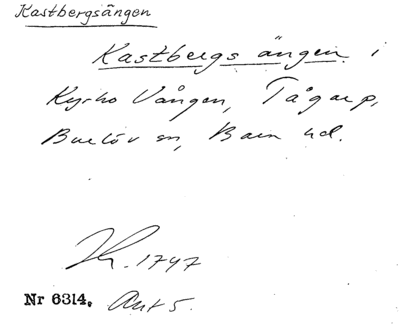 Kastbergsängen
Kastbergs ängen i
Kyrko Vången, Tågarp,
Burlöv sn, Bara hd.
Lh. 1747
Nr 6314. Akt 5.